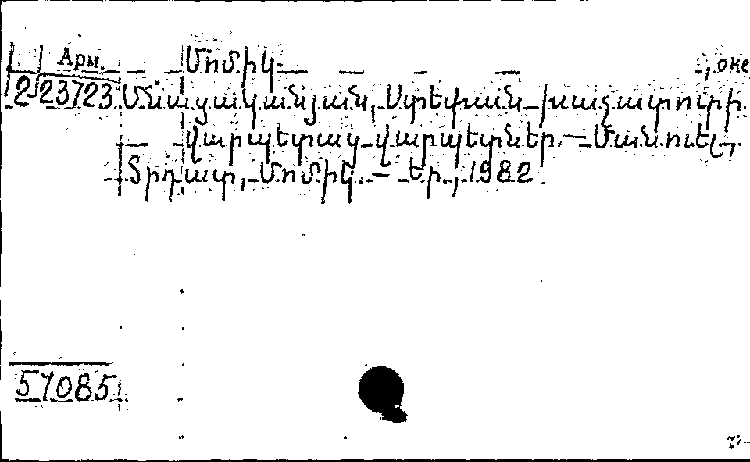 Арм. Մոմիկ , оне
2 23723 Մնացականյան, Ստեփան Խաչատուրի.
Վարպետաց վարպետներ. — Մանուել,
Տրդատ, Մոմիկ. — Եր., 1982
57085